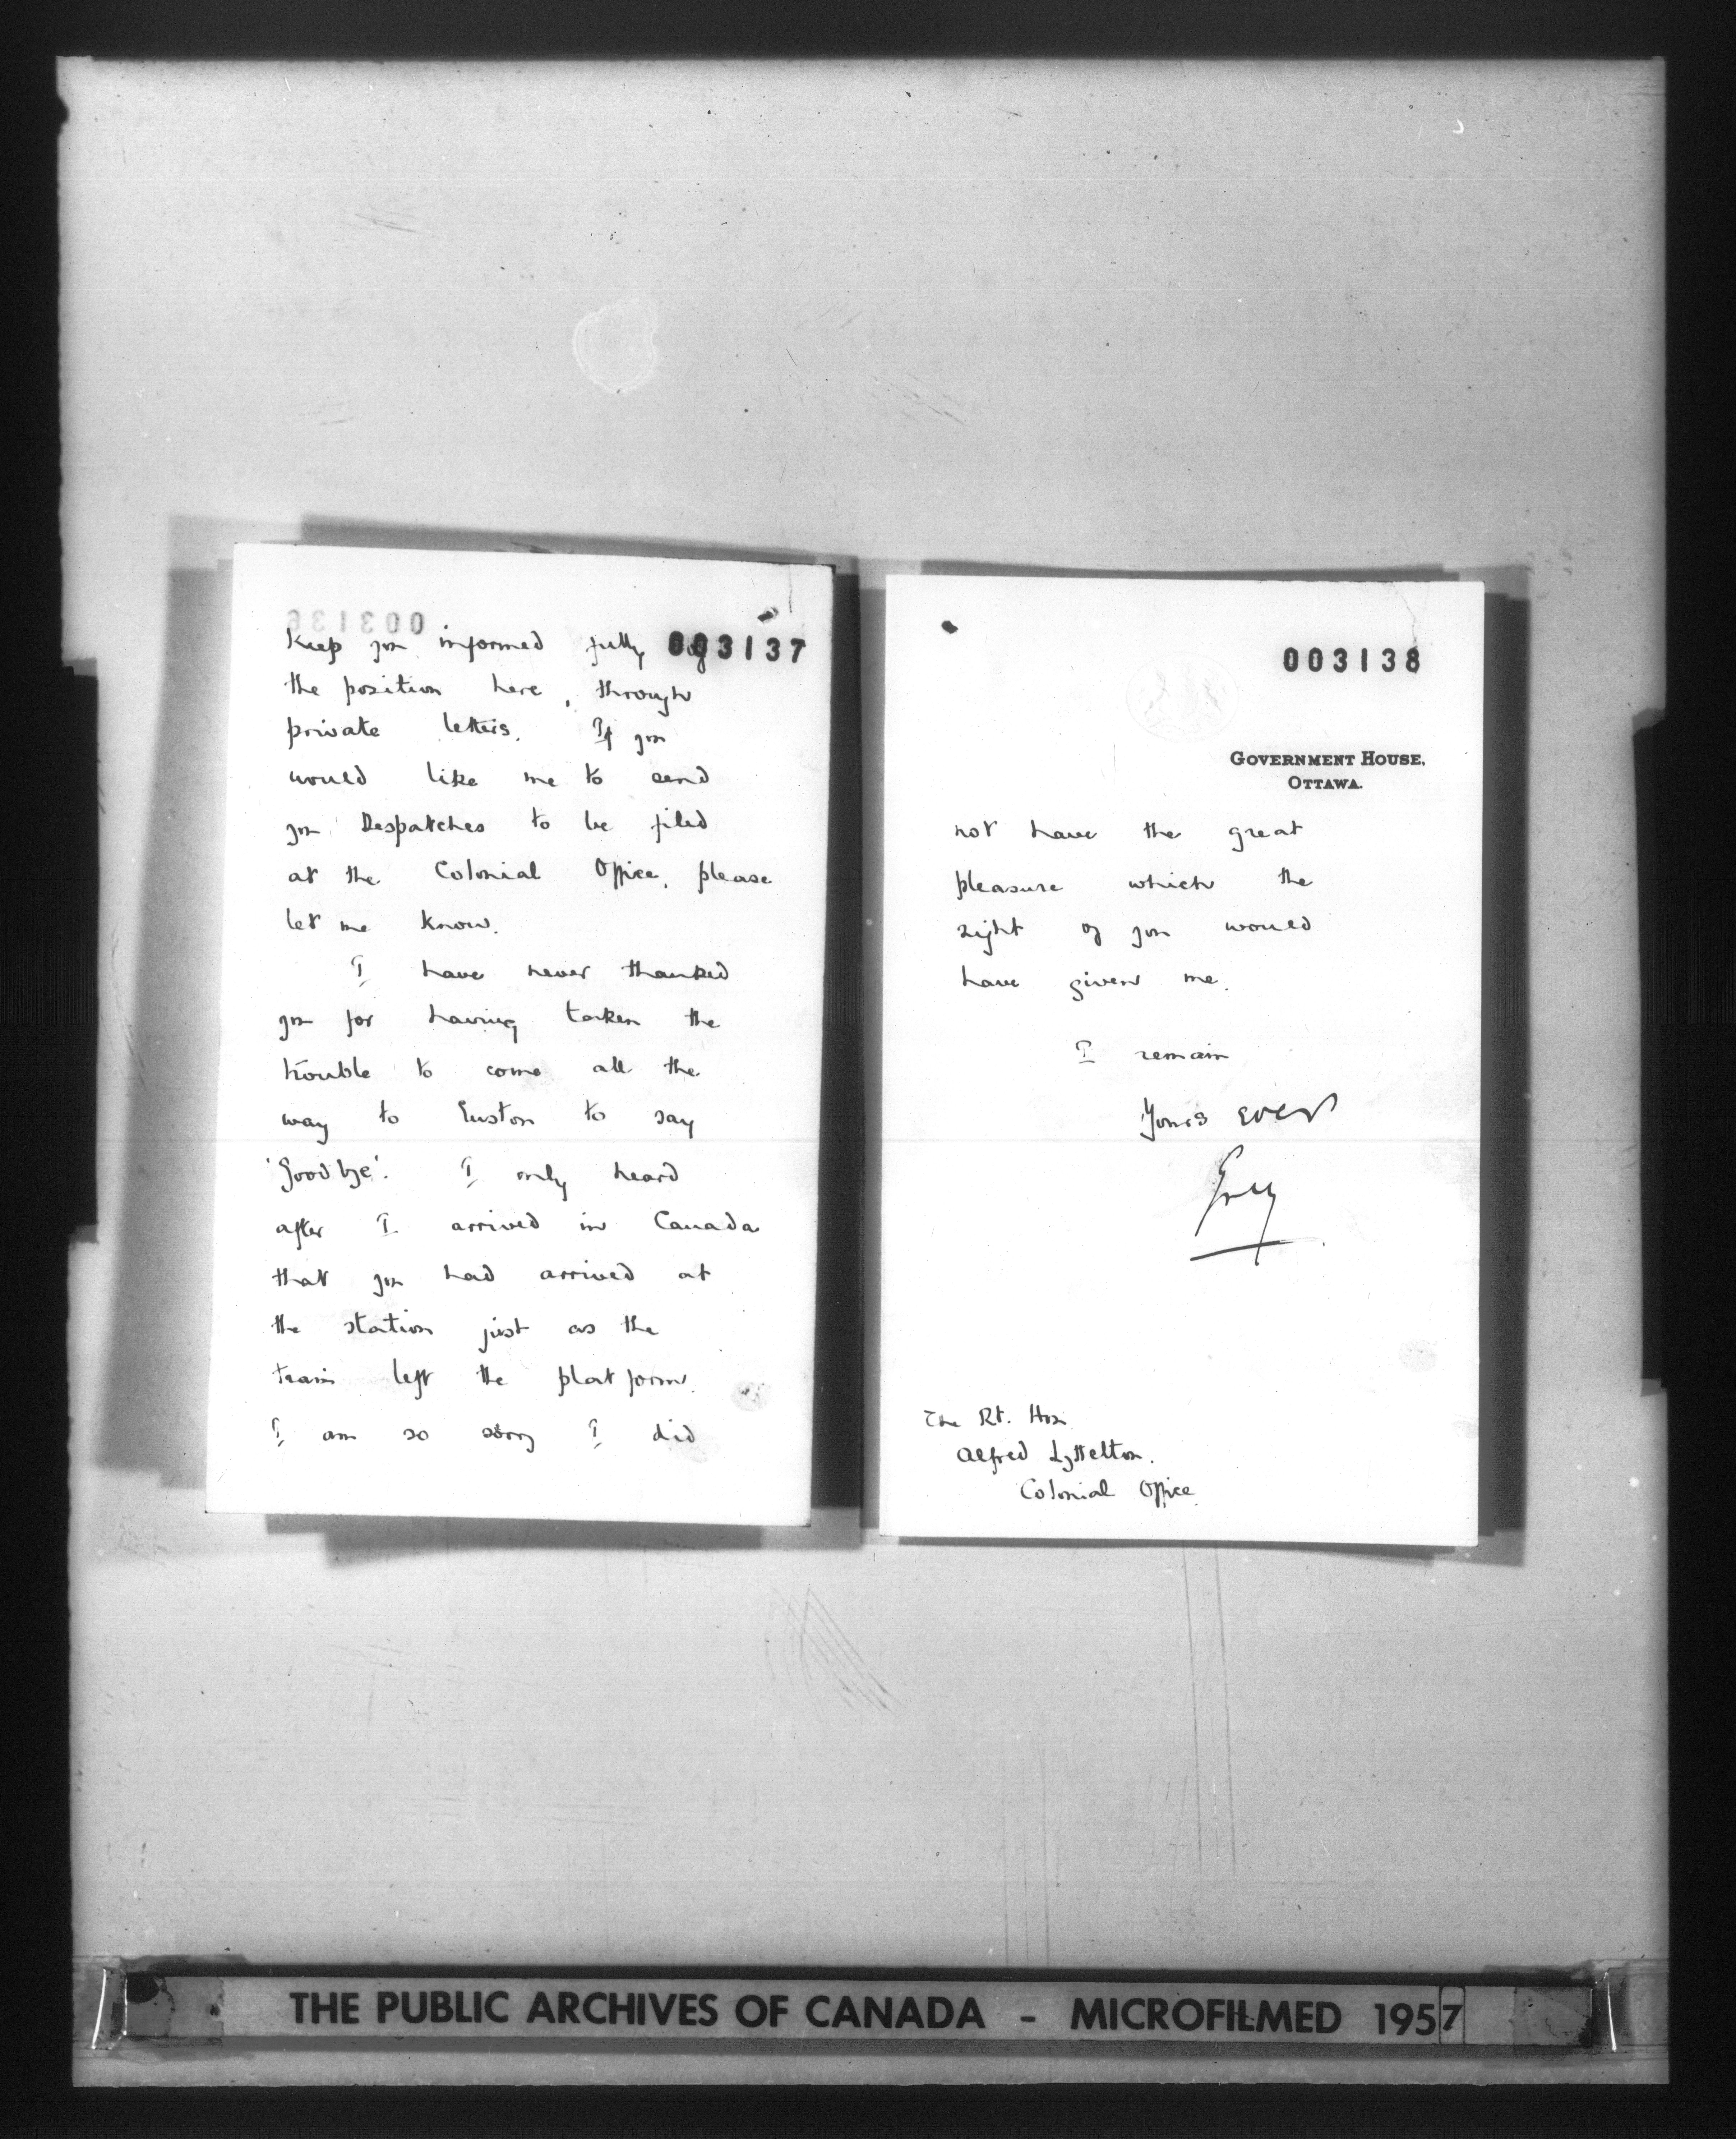 003137
Keep you informed fully of
the position here, through
private letters. If you
would like me to send
you Despatches to be filed
at the Colonial Office, please
let me know.
I have never thanked
you for having taken the
trouble to come all the
way to Euston to say
'Goodbye'. I only heard
after I arrived in Canada
that you had arrived at
the station just as the
train left the platform.
I am so sorry I did
003138
GOVERNMENT HOUSE,
OTTAWA.
not have the great
pleasure which the
sight of you would
have given me.
I remain
Yours ever
Grey
The Rt. Hon
Alfred Lyttelton.
Colonial Office
THE PUBLIC ARCHIVES OF CANADA - MICROFILMED 1957